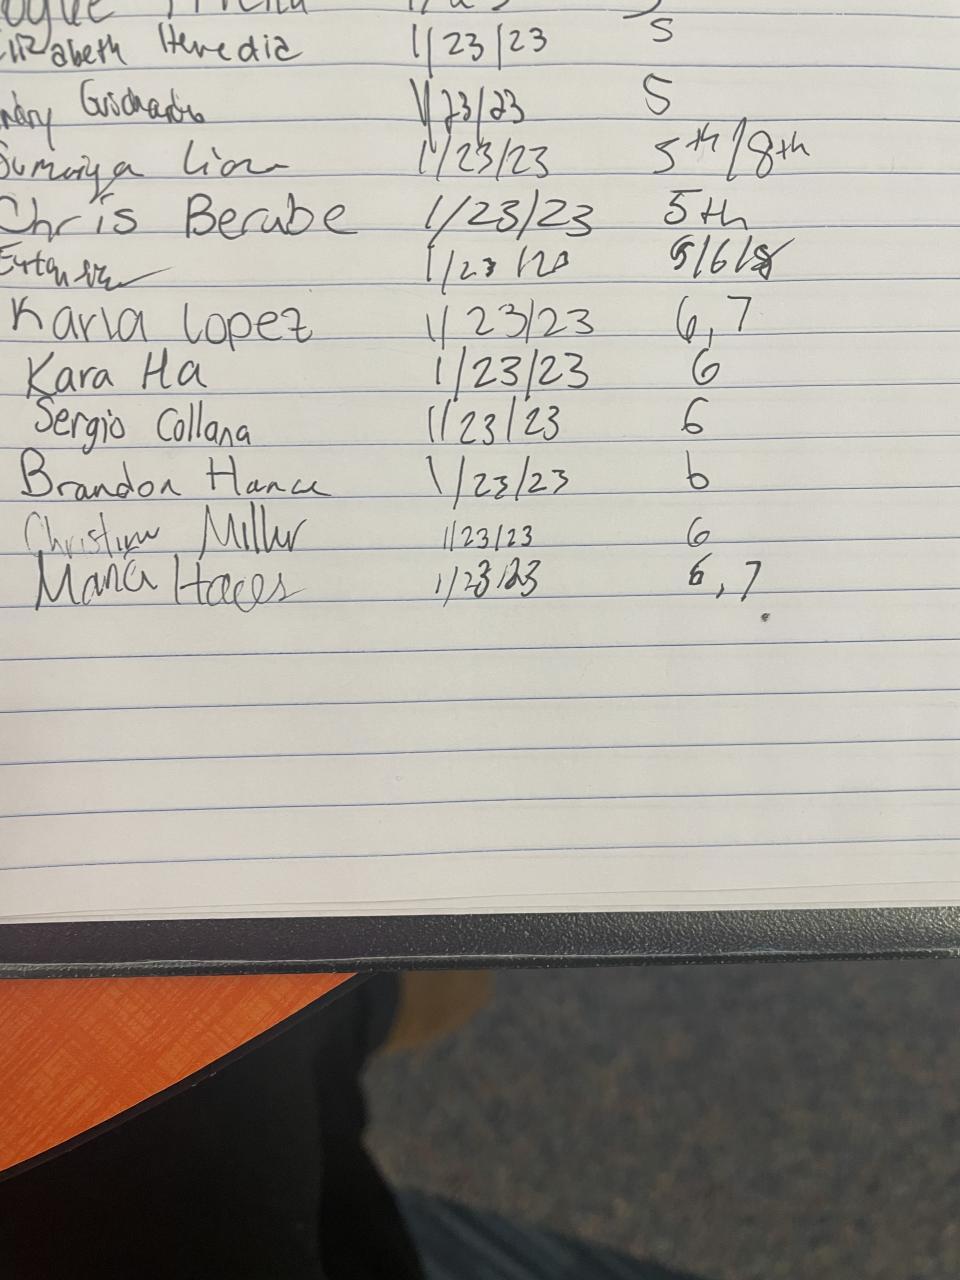 Elizabeth Heredia 1/23/23 5
1/23/23 5
Sumaiya 1/23/23 5th/8th
Chris Berube 1/23/23 5th
1/23 5/6/8
Karla Lopez 1/23/23 6,7
Kara Ha 1/23/23 6
Sergio Collana 1/23/23 6
Brandon Hance 1/23/23 6
Christine Miller 1/23/23 6
Maria 1/23/23 6,7